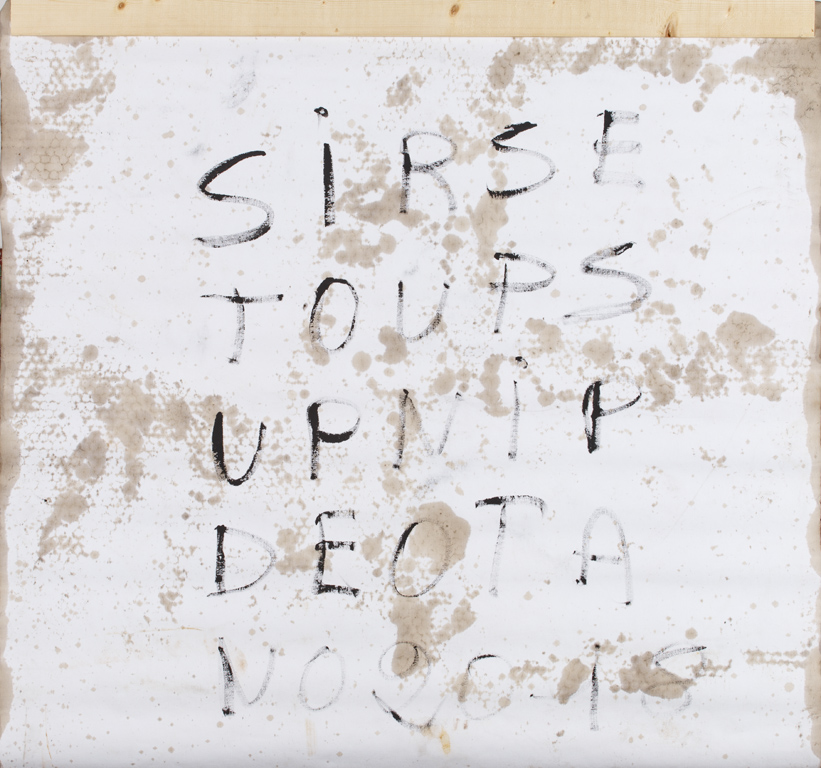 SiRSE
TOUPS
UPNiP
DEOTA
NO20-15